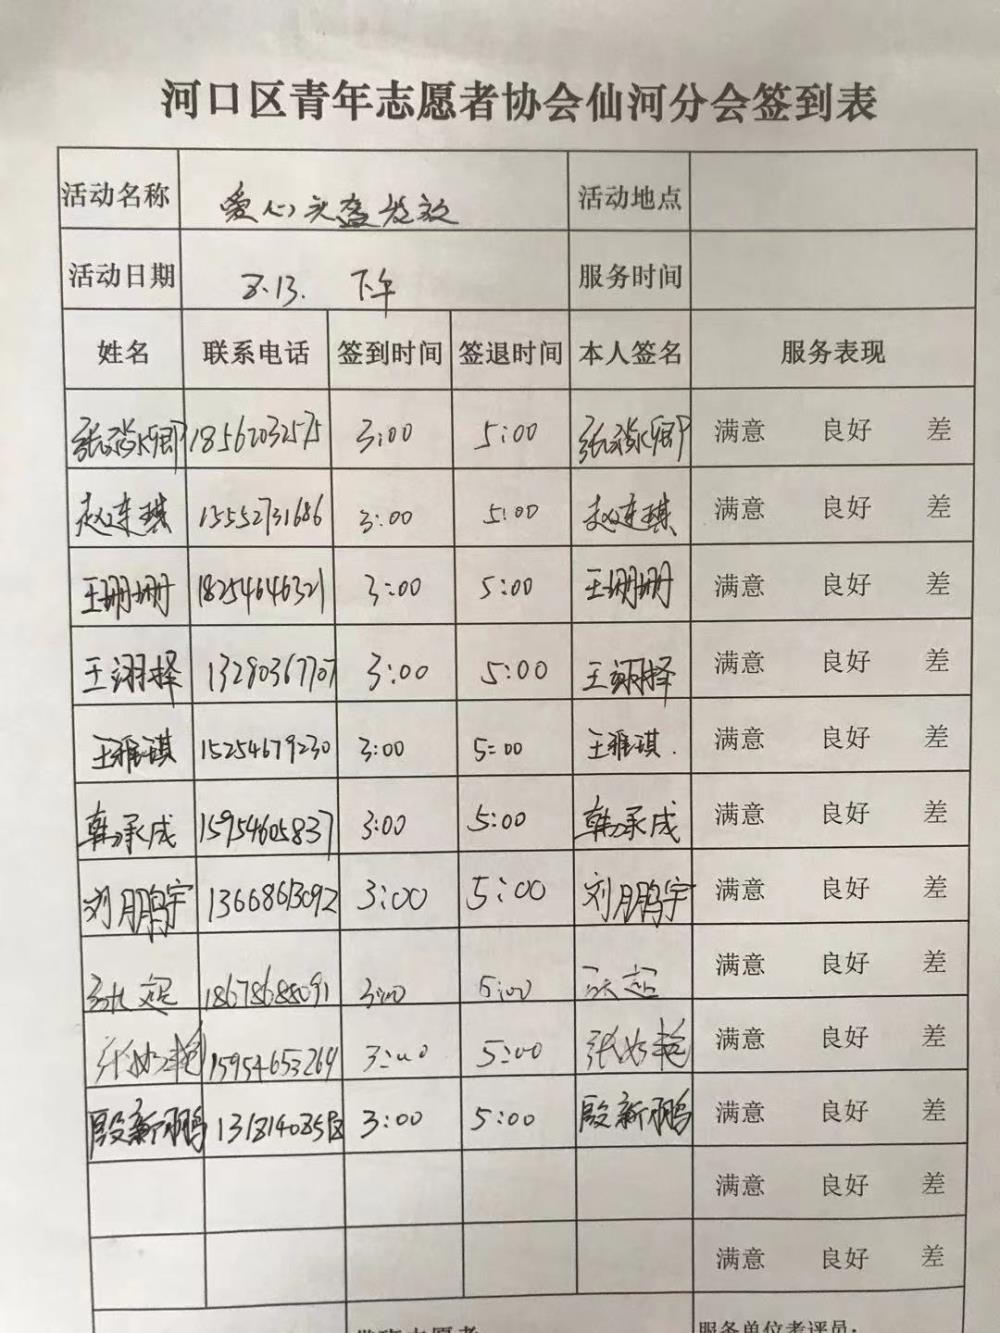 河口区青年志愿者协会仙河分会签到表
活动名称 爱心头盔发放 活动地点
活动日期 8.13. 下午 服务时间
姓名 联系电话 签到时间 签退时间 本人签名 服务表现
18562032575 3:00 5:00 满意 良好 差
赵连琪 15552731686 3:00 5:00 赵连琪 满意 良好 差
王珊珊 18254646321 3:00 5:00 王珊珊 满意 良好 差
王翊择 13280367707 3:00 5:00 王翊择 满意 良好 差
王雅琪 15254679230 3:00 5:00 王雅琪. 满意 良好 差
韩承成 15954605837 3:00 5:00 韩承成 满意 良好 差
刘鹏宇 13668613092 3:00 5:00 刘鹏宇 满意 良好 差
18678688091 3:00 5:00 满意 良好 差
15954653264 3:00 5:00 满意 良好 差
殷新鹏 3:00 5:00 殷新鹏 满意 良好 差
满意 良好 差
满意 良好 差
服务单位考评员: